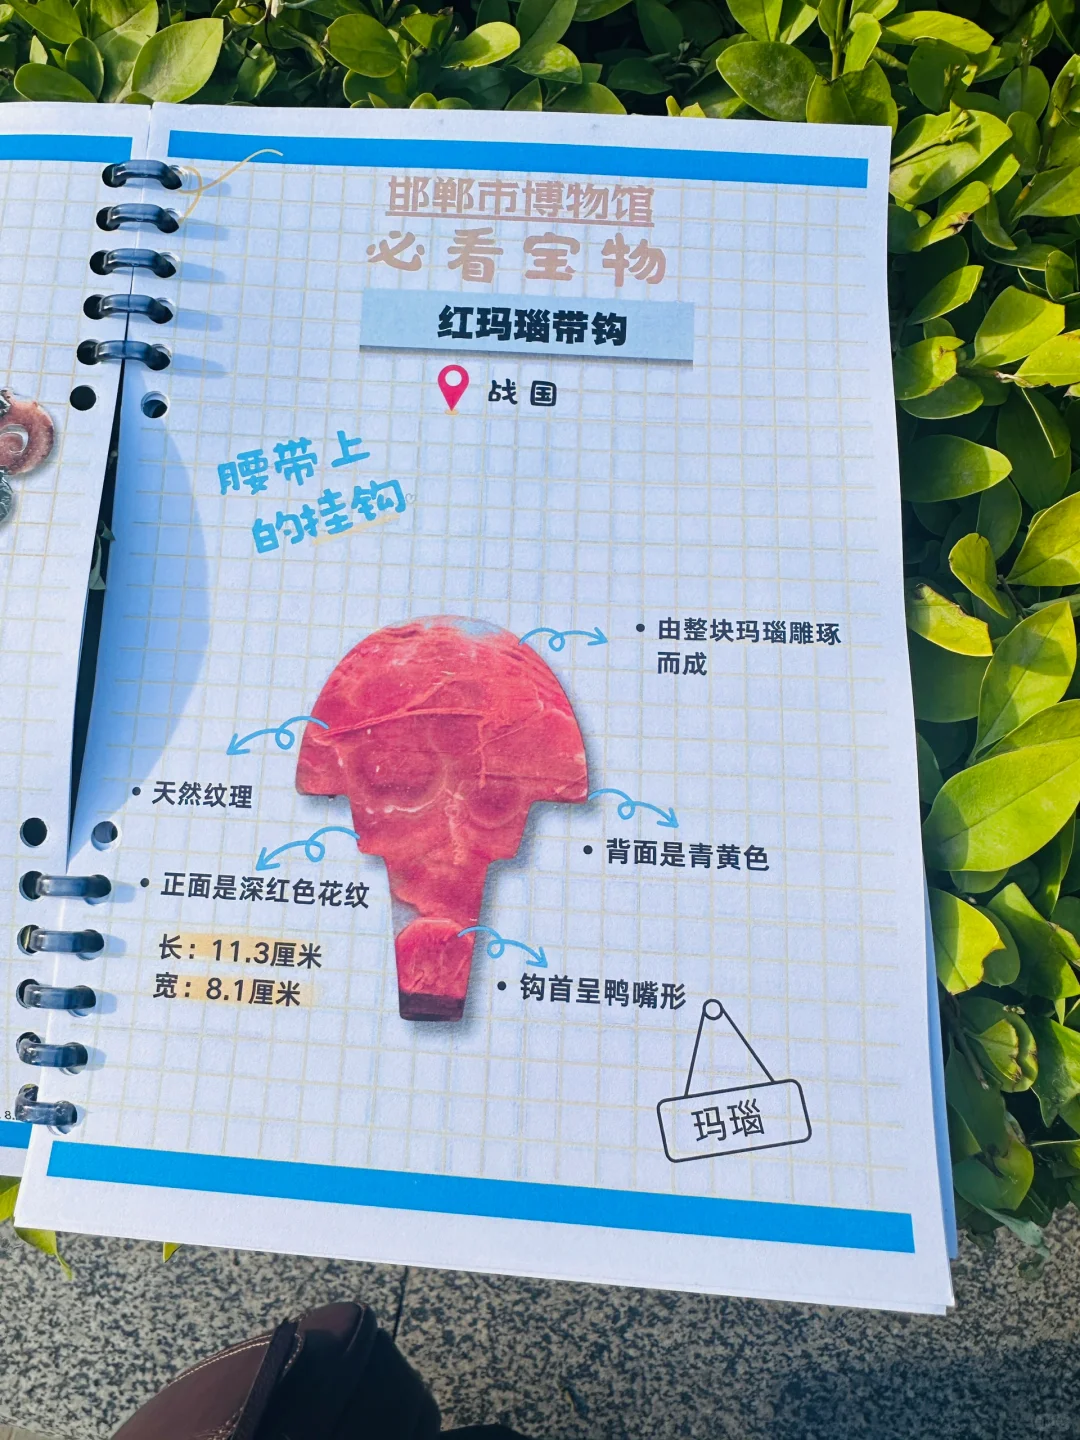 邯郸市博物馆
必看宝物
红玛瑙带钩
战国
腰带上
的挂钩
由整块玛瑙雕琢
而成
天然纹理
背面是青黄色
正面是深红色花纹
长：11.3厘米
宽：8.1厘米
钩首呈鸭嘴形
玛瑙
8.